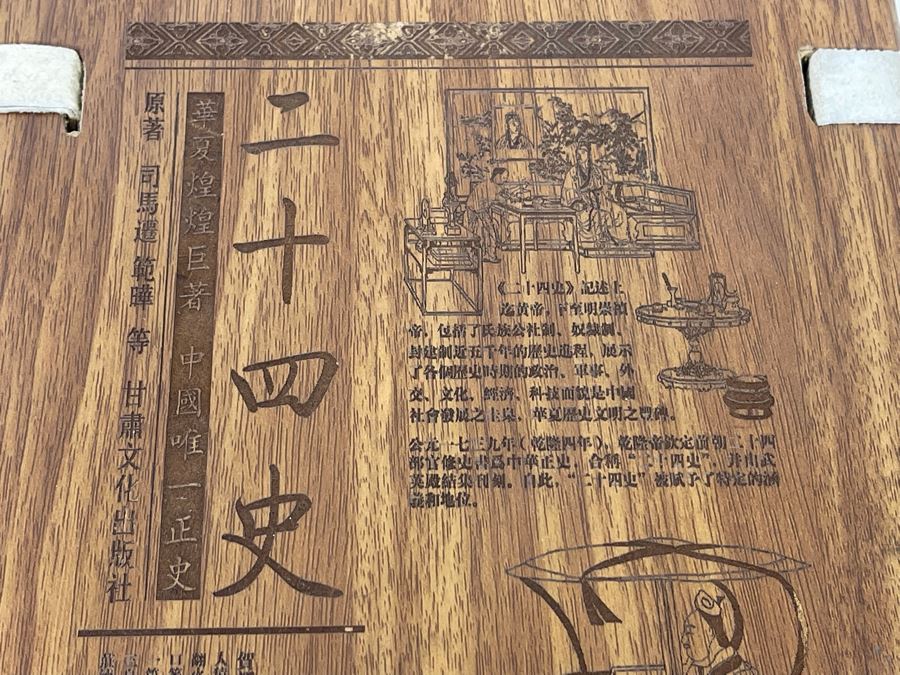 二十四史
華夏煌煌巨著 中國唯一正史
原著 司馬遷 範曄 等 甘肅文化出版社
《二十四史》記述上
迄黃帝，下至明崇禎
帝，包括了氏族公社制、奴隸制、
封建制近五千年的歷史進程，展示
了各個歷史時期的政治、軍事、外
交、文化、經濟、科技面貌是中國
社會發展之主幹，華夏歷史文明之豐碑。
公元一七三九年（乾隆四年），乾隆帝欽定前朝二十四
部官修史書爲中華正史，合稱“二十四史”并由武
英殿結集刊刻。自此，“二十四史”被賦予了特定的涵
義和地位。